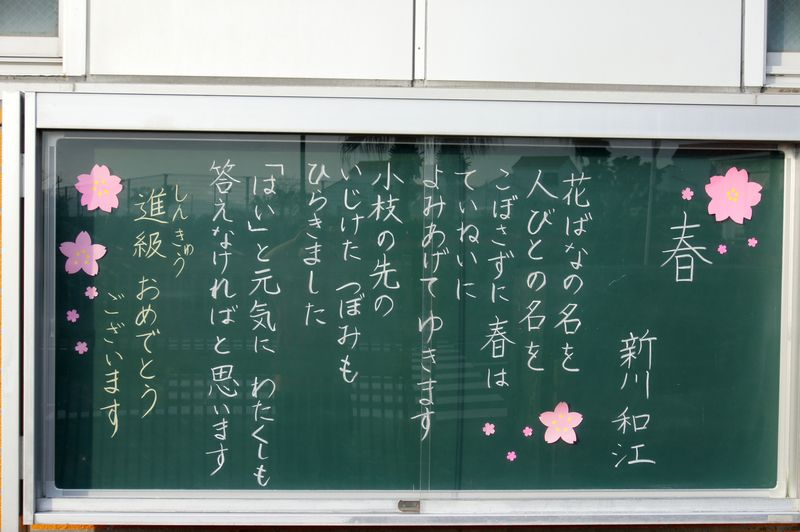 春
新川和江
花ばなの名を
人びとの名を
こぼさずに 春は
ていねいに
よみあげてゆきます
小枝の先の
いじけた つぼみも
ひらきました
「はい」と元気に わたくしも
答えなければと 思います
しんきゅう
進級 おめでとう
ございます